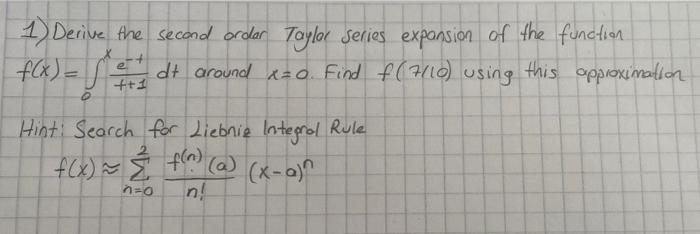 1) Derive the second order Taylor series expansion of the function
f(x) = ∫₀ˣ e^-t / t+1 dt around x=0. Find f(7/10) using this approximation
Hint: Search for Liebnie Integral Rule
f(x) ≈ ∑_{n=0}^{2} f^(n)(a) / n! (x-a)^n